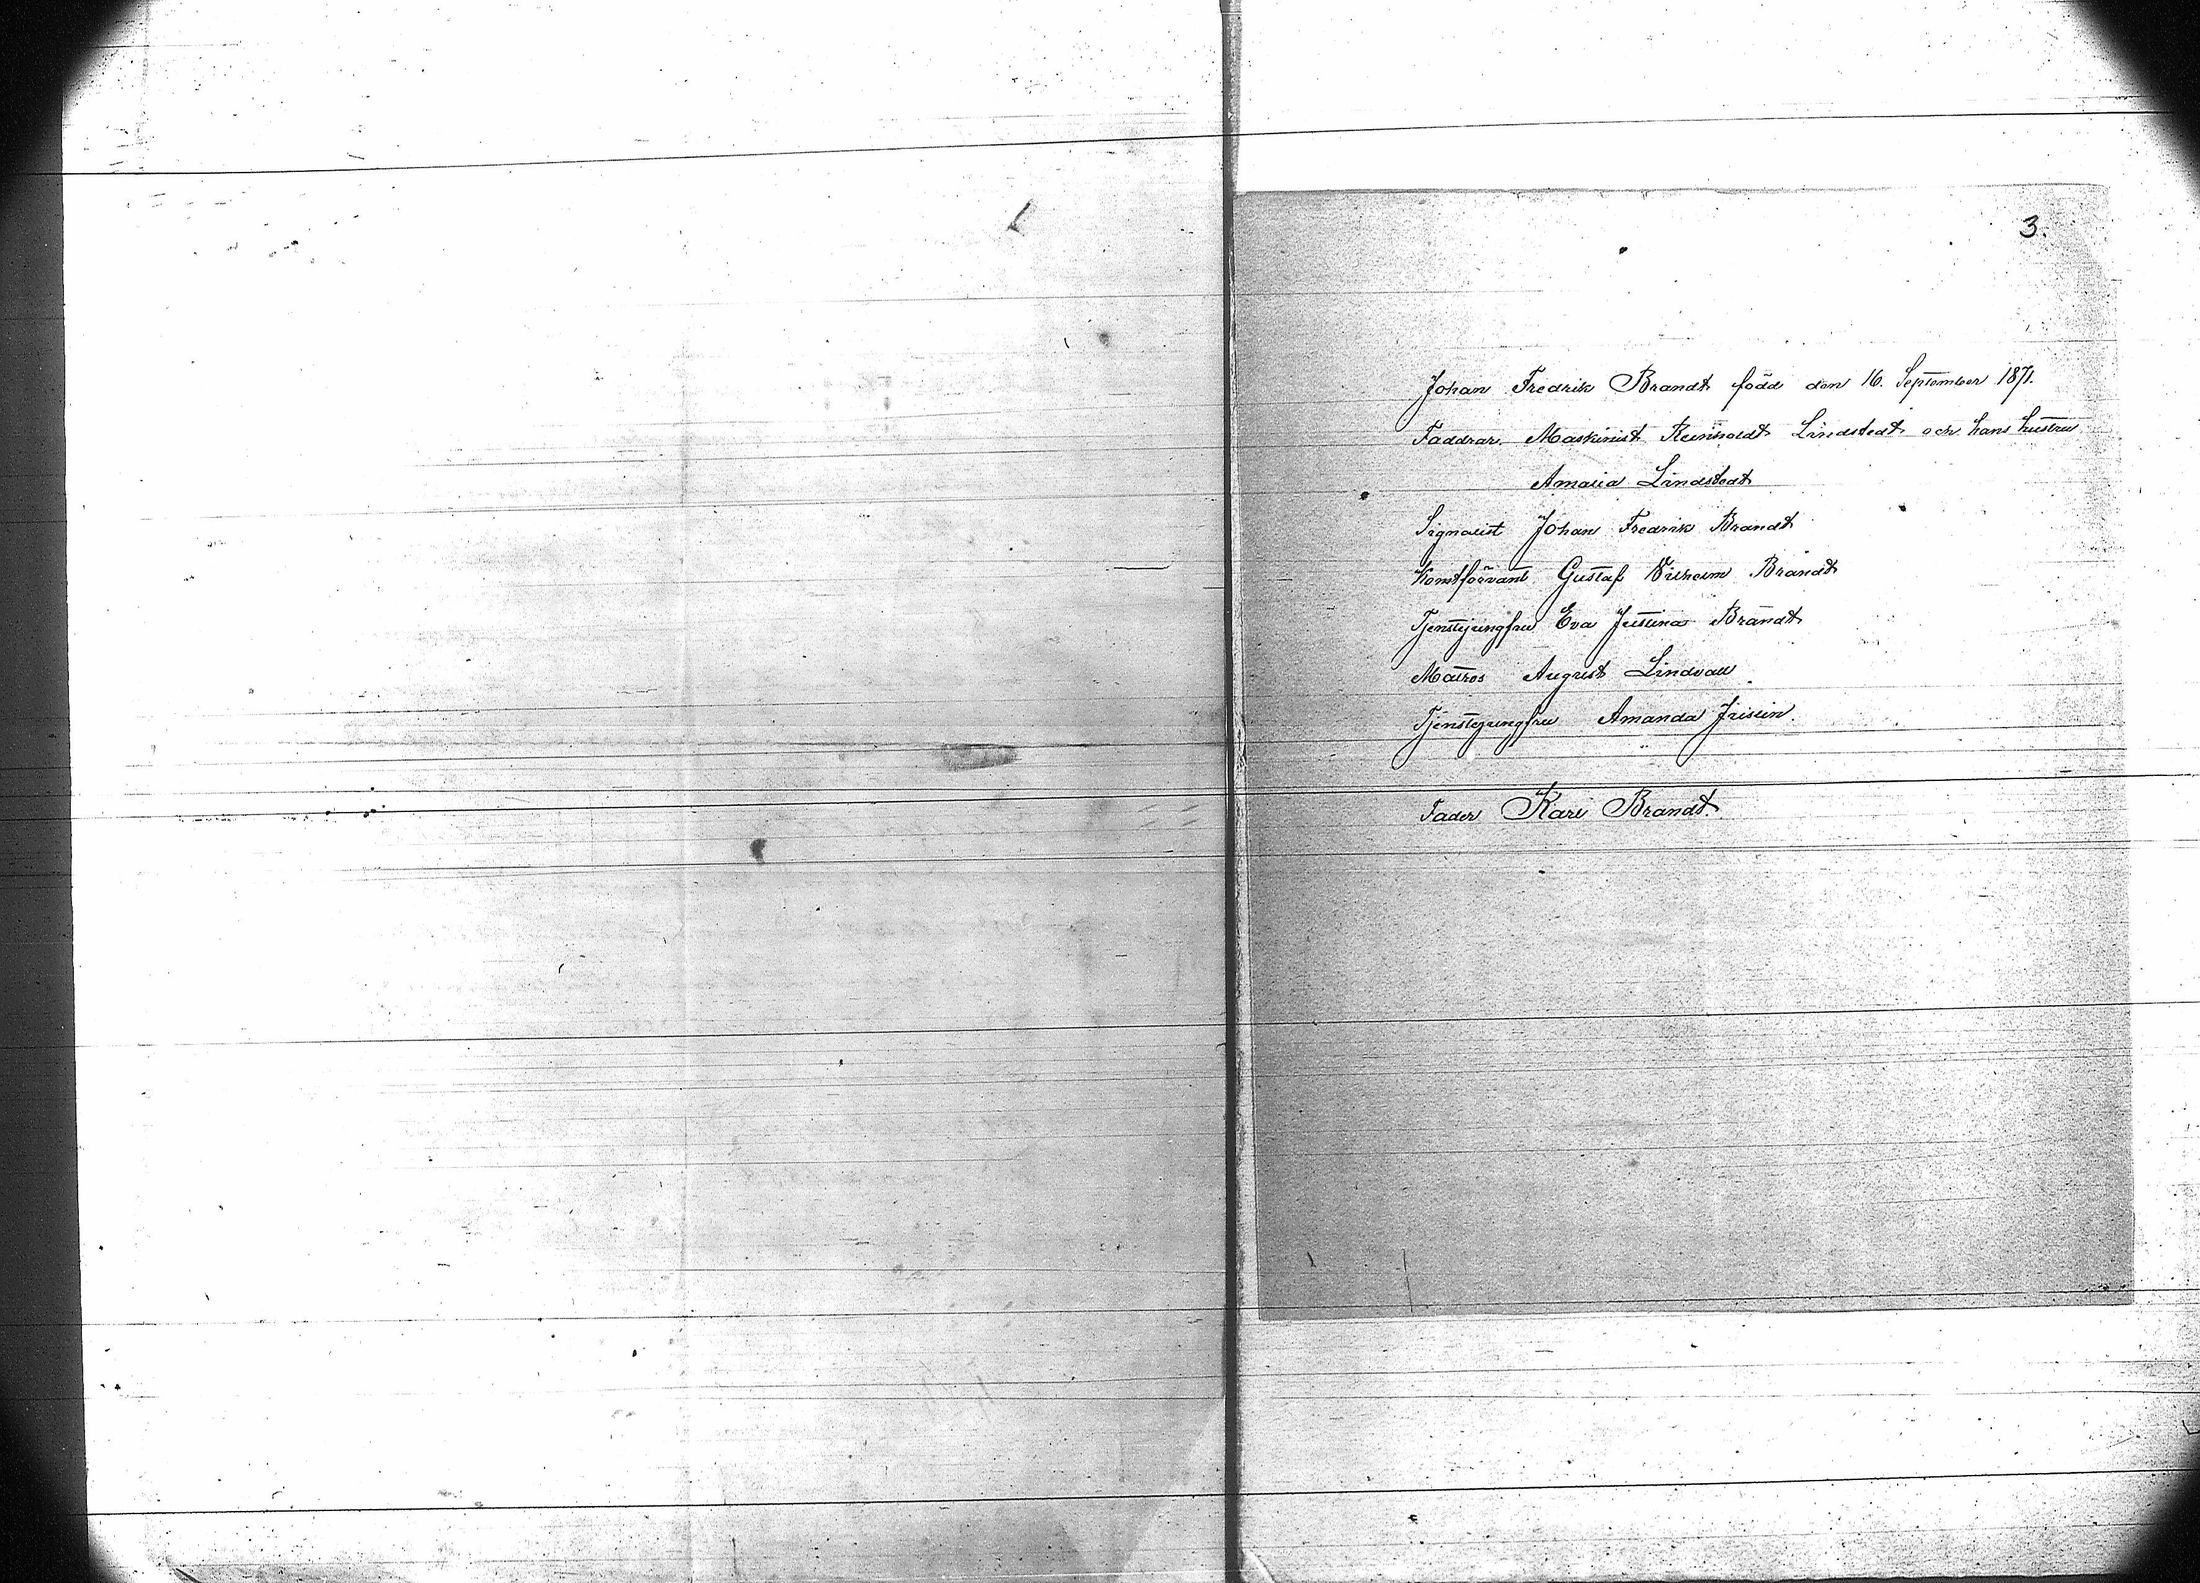 3.
Johan Fredrik Brandt född den 16. September 1871.
Faddrar. Maskinist Reinholdt Lindstedt och hans hustru
Amalia Lindstedt
Signalist Johan Fredrik Brandt
Konstförvant Gustaf Vilhelm Brandt
Tjenstejungfru Eva Justina Brandt
Matros August Lindvall
Tjenstejungfru Amanda
Fader Karl Brandt.